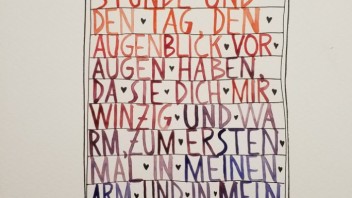 STUNDE UND
DEN TAG, DEN
AUGENBLICK VOR
AUGEN HABEN,
DA SIE DICH MIR
WINZIG UND WA
RM, ZUM ERSTEN
MAL IN MEINEN
ARM UND IN MEIN